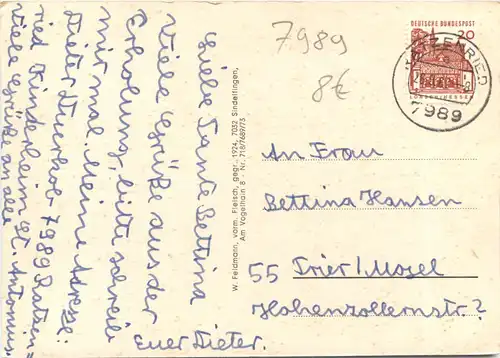 Liebe Tante Bettina
Viele Grüße aus der
Erholung, bitte schreib
mir mal. Meine Adresse:
Dieter 7989 Ratzen=
ried Kinderheim St. Antonius
viele Grüße an alle
Euer Dieter.
W. Feldmann, vorm. Fleisch, gegr. 1924, 7032 Sindelfingen,
Am Vogelhain 8 - Nr. 718/7689/73
7989
8€
DEUTSCHE BUNDESPOST
20
RATZENRIED
7989
An Frau
Bettina Hansen
55 Trier/Mosel
Hohenzollernstr. ?